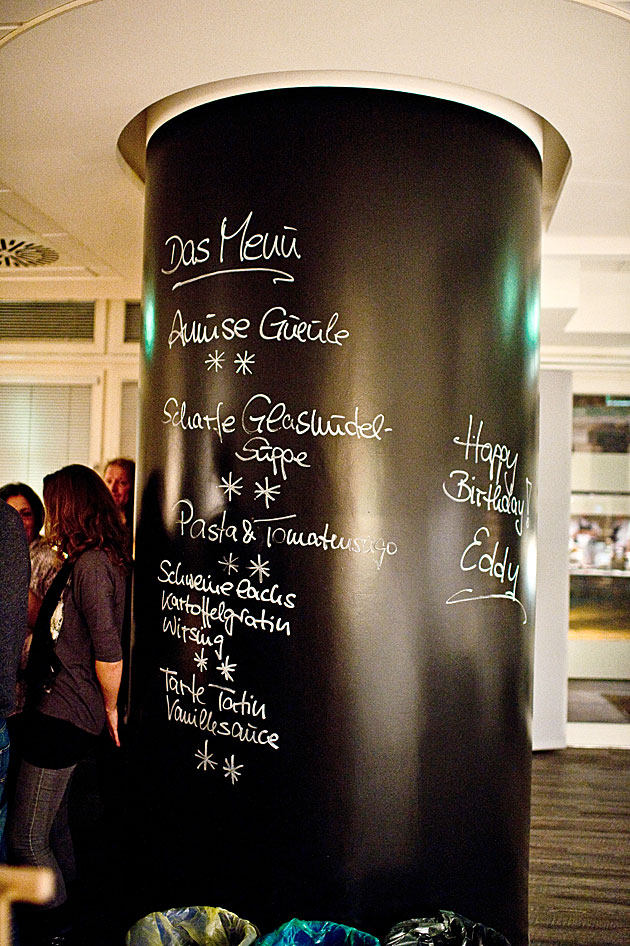 Das Menü
Amuse Gueule
**
Scharfe Glasnudel-
Suppe
**
Pasta & Tomatensugo
**
Schweinelachs
Kartoffelgratin
Wirsing
**
Tarte Tatin
Vanillesauce
**
Happy
Birthday!
Eddy